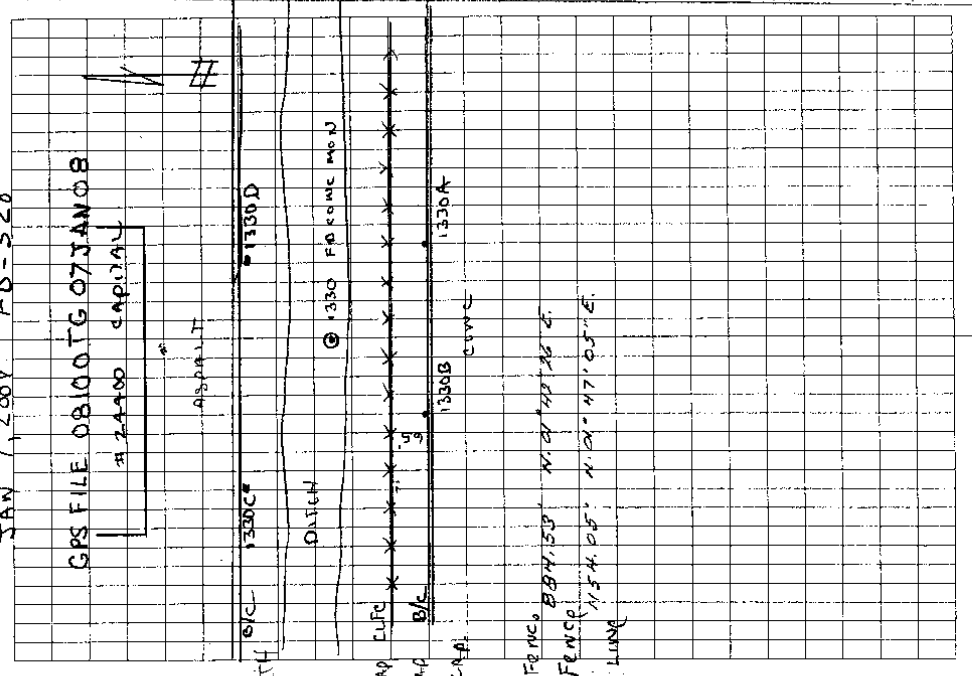 JAN 7, 2008 AD-520
GPS FILE 08100TG 07JAN08
# 24400 CAPITAL
ASPALT
B/C 1330C 1330D
DITCH
1330 FD CONC MON
CLFC
B/C 1330B 1330A
CONC
FENCE 884.53' N.01°42'26"E.
FENCE 1154.05' N.01°47'05"E.
LINE